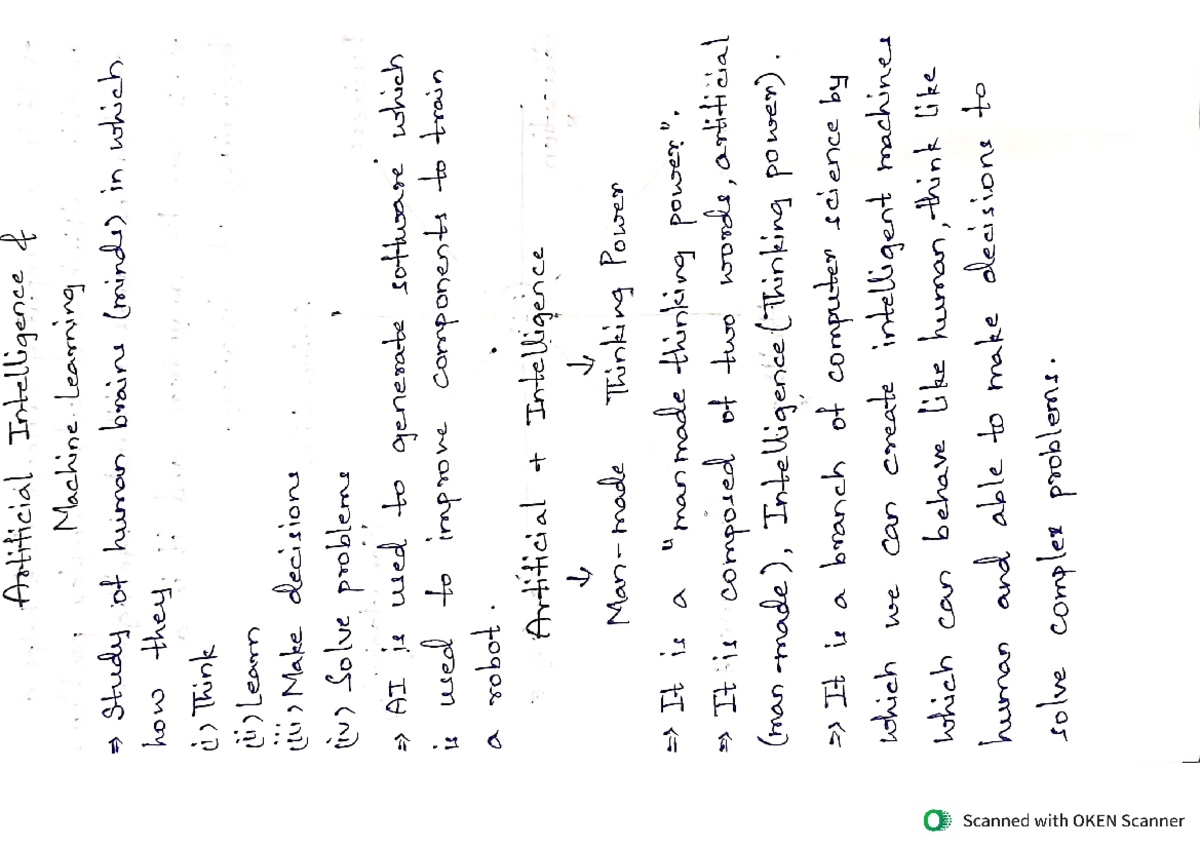 Artificial Intelligence &
Machine Learning
⇒ Study of human brains (minds) in which
how they
(i) Think
(ii) Learn
(iii) Make decisions
(iv) Solve problems
⇒ AI is used to generate software which
is used to improve components to train
a robot.
Artificial + Intelligence
↓ ↓
Man-made Thinking Power
⇒ It is a "manmade thinking power".
⇒ It is composed of two words, artificial
(man-made), Intelligence (Thinking power).
⇒ It is a branch of computer science by
which we can create intelligent machines
which can behave like human, think like
human and able to make decisions to
solve complex problems.
Scanned with OKEN Scanner